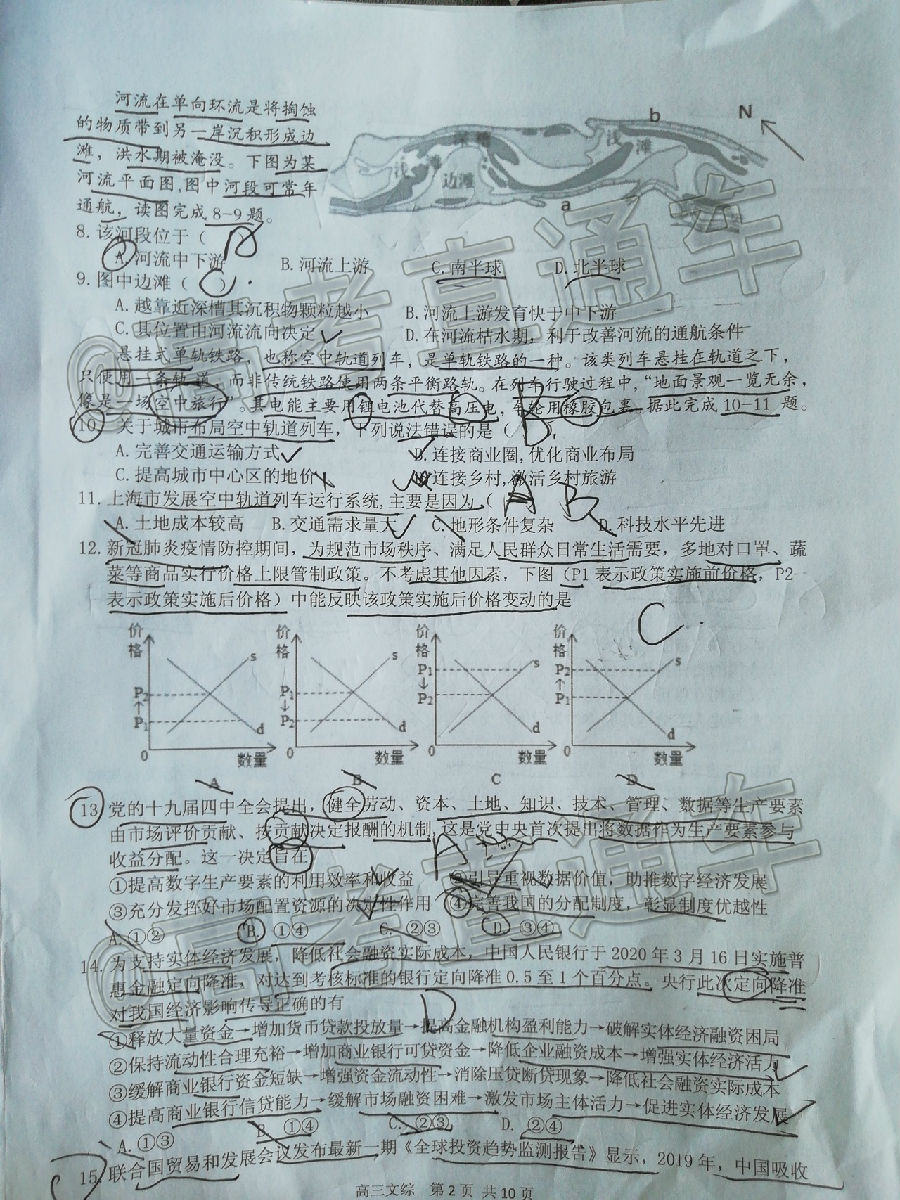 河流在单向环流是将掏蚀
的物质带到另一岸沉积形成边
滩，洪水期被淹没。下图为某
河流平面图,图中河段可常年
通航，读图完成8-9题。
深槽
浅滩
边滩
浅滩
a
b
N
8. 该河段位于（ B
A. 河流中下游 B. 河流上游 C. 南半球 D. 北半球
9. 图中边滩（ ）.
A. 越靠近深槽其沉积物颗粒越小 B. 河流上游发育快于中下游
C. 其位置由河流流向决定 D. 在河流枯水期，利于改善河流的通航条件
悬挂式单轨铁路，也称空中轨道列车，是单轨铁路的一种。该类列车悬挂在轨道之下，
只使用一条轨道，而非传统铁路使用两条平衡路轨。在列车行驶过程中，“地面景观一览无余，
像是一场空中旅行”。其电能主要用锂电池代替高压电，车轮用橡胶包裹。据此完成10-11题。
10. 关于城市布局空中轨道列车，下列说法错误的是（ B
A. 完善交通运输方式 B. 连接商业圈, 优化商业布局
C. 提高城市中心区的地价 D. 连接乡村, 激活乡村旅游
11. 上海市发展空中轨道列车运行系统, 主要是因为（ A B
A. 土地成本较高 B. 交通需求量大 C. 地形条件复杂 D. 科技水平先进
12. 新冠肺炎疫情防控期间，为规范市场秩序、满足人民群众日常生活需要，多地对口罩、蔬
菜等商品实行价格上限管制政策。不考虑其他因素，下图（P1 表示政策实施前价格，P2
表示政策实施后价格）中能反映该政策实施后价格变动的是
C.
价格 P2 ↑ P1 0 s d 数量
价格 P1 ↓ P2 0 s d 数量
价格 P1 ↓ P2 0 s d 数量
价格 P2 ↑ P1 0 s d 数量
A B C D
13 党的十九届四中全会提出，健全劳动、资本、土地、知识、技术、管理、数据等生产要素
由市场评价贡献、按贡献决定报酬的机制, 这是党中央首次提出将数据作为生产要素参与
收益分配。这一决定旨在 A
①提高数字生产要素的利用效率和收益 ②引导重视数据价值，助推数字经济发展
③充分发挥好市场配置资源的决定性作用 ④完善我国的分配制度，彰显制度优越性
A. ①② B. ①④ C. ②③ D. ③④
14. 为支持实体经济发展，降低社会融资实际成本，中国人民银行于 2020 年 3 月 16 日实施普
惠金融定向降准，对达到考核标准的银行定向降准 0.5 至 1 个百分点。央行此次定向降准
对我国经济影响传导正确的有 D
①释放大量资金→增加货币贷款投放量→提高金融机构盈利能力→破解实体经济融资困局
②保持流动性合理充裕→增加商业银行可贷资金→降低企业融资成本→增强实体经济活力
③缓解商业银行资金短缺→增强资金流动性→消除压贷断贷现象→降低社会融资实际成本
④提高商业银行信贷能力→缓解市场融资困难→激发市场主体活力→促进实体经济发展
A. ①③ B. ①④ C. ②③ D. ②④
15. 联合国贸易和发展会议发布最新一期《全球投资趋势监测报告》显示，2019 年，中国吸收
高三文综 第 2 页 共 10 页
@高考直通车
@高考直通车